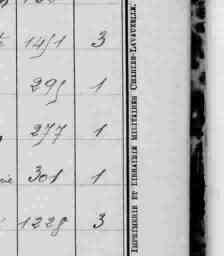 1451 3
295 1
277 1
301 1
1228 3
IMPRIMERIE ET LIBRAIRIE MILITAIRES CHARLES-LAVAUZELLE.